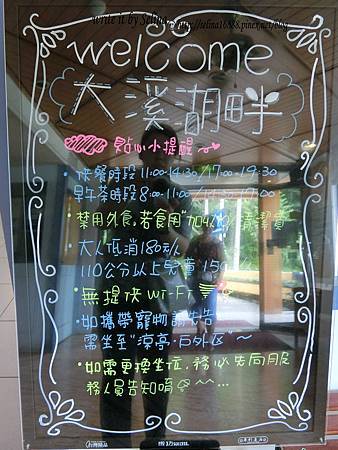 write it by Selina
welcome
大溪湖畔
點心小提醒
供餐時段 11:00-14:30/17:00-19:30
早午茶時段 8:00-11:00
禁用外食,若食用"加
清潔費
大人低消180元/人
110公分以上兒童
無提供Wi-Fi
如攜帶寵物請先告
需坐至"涼亭·戶外區"~
如需更換坐位,務必先向服
務人員告知唷 ^^...